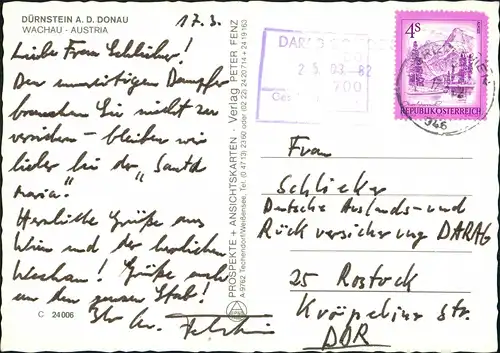 DÜRNSTEIN A. D. DONAU
WACHAU - AUSTRIA
17.3.
Liebe Frau Schlicker!
Den unnötigen Dampfer
brauchen Sie nicht zu
versichern - bleiben wir
lieber bei der "Santa
Maria"!
Herzliche Grüße aus
Wien und der herrlichen
Wachau! Grüße auch
an den ganzen Stab!
Ihr
C 24006
PROSPEKTE + ANSICHTSKARTEN · Verlag PETER FENZ
A-9762 Techendorf/Weißensee, Tel. (0 47 13) 23 60 oder (02 22) 24 20 714 + 24 19 163
DARAG
25. 03. 82
700
4S
REPUBLIK ÖSTERREICH
346
Frau
Schlicker
Deutsche Auslands- und
Rückversicherung DARAG
25 Rostock
Kröpeliner Str.
DDR